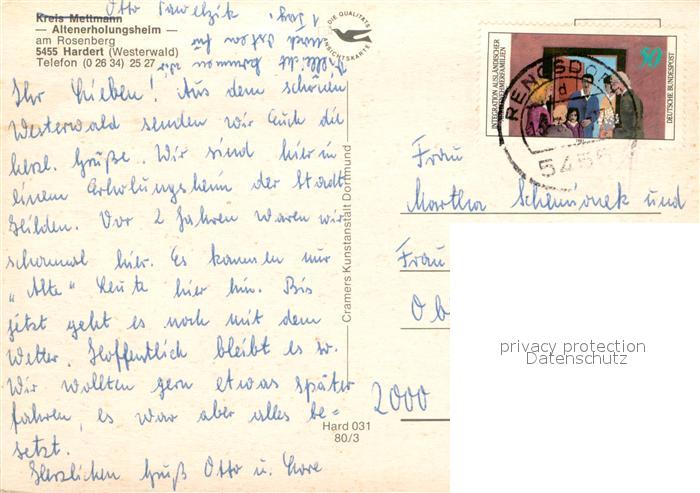 Otto Pawelzik
Kreis Mettmann
— Altenerholungsheim —
am Rosenberg
5455 Hardert (Westerwald)
Telefon (0 26 34) 25 27
Ihr Lieben! Aus dem schönen
Westerwald senden wir Euch die
herzl. Grüße. Wir sind hier in
einem Erholungsheim der Stadt
Hilden. Vor 2 Jahren waren wir
schonmal hier. Es kommen nur
"Alte" Leute hier hin. Bis
jetzt geht es noch mit dem
Wetter. Hoffentlich bleibt es so.
Wir wollten gern etwas später
fahren, es war aber alles be=
setzt.
Herzlichen Gruß Otto u. Lore
DIE QUALITÄTS
ANSICHTSKARTE
Cramers Kunstanstalt Dortmund
Hard 031
80/3
INTEGRATION AUSLÄNDISCHER
ARBEITNEHMERFAMILIEN
50
DEUTSCHE BUNDESPOST
RENGSDORF
5455
Frau
Martha Schemionek und
Frau
Ob
2000
privacy protection
Datenschutz